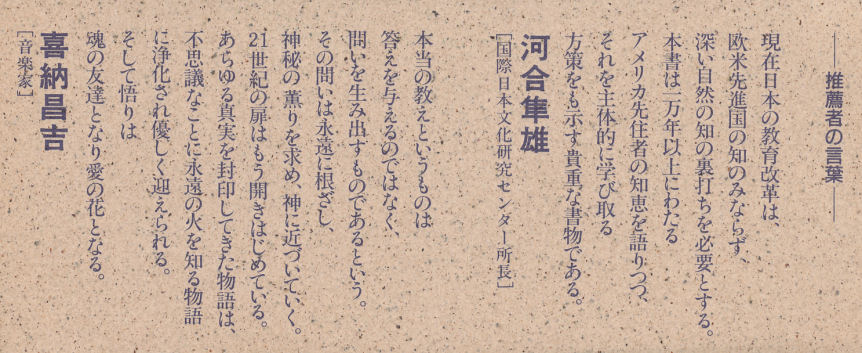 ──推薦者の言葉──
現在日本の教育改革は、
欧米先進国の知のみならず、
深い自然の知の裏打ちを必要とする。
本書は一万年以上にわたる
アメリカ先住者の知恵を語りつつ、
それを主体的に学び取る
方策をも示す貴重な書物である。
河合隼雄
［国際日本文化研究センター所長］
本当の教えというものは
答えを与えるのではなく、
問いを生み出すものであるという。
その問いは永遠に根ざし、
神秘の薫りを求め、神に近づいていく。
21世紀の扉はもう開きはじめている。
あらゆる真実を封印してきた物語は、
不思議なことに永遠の火を知る物語
に浄化され優しく迎えられる。
そして悟りは
魂の友達となり愛の花となる。
喜納昌吉
［音楽家］